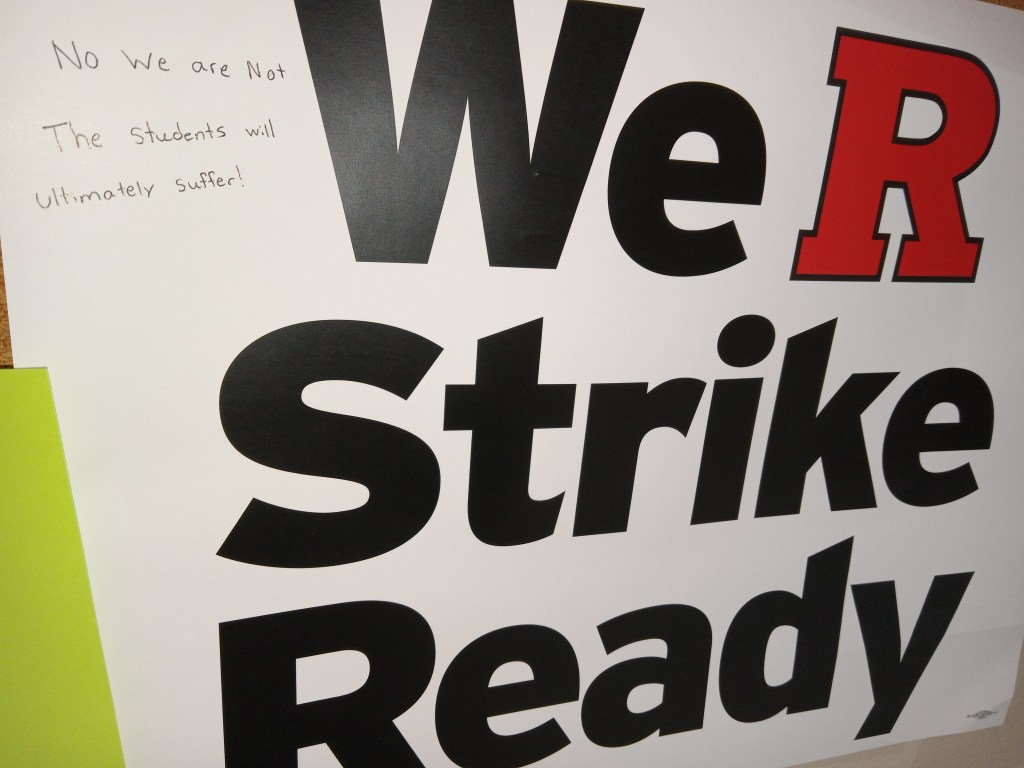 No We are Not
The students will
ultimately suffer!
We R
Strike
Ready